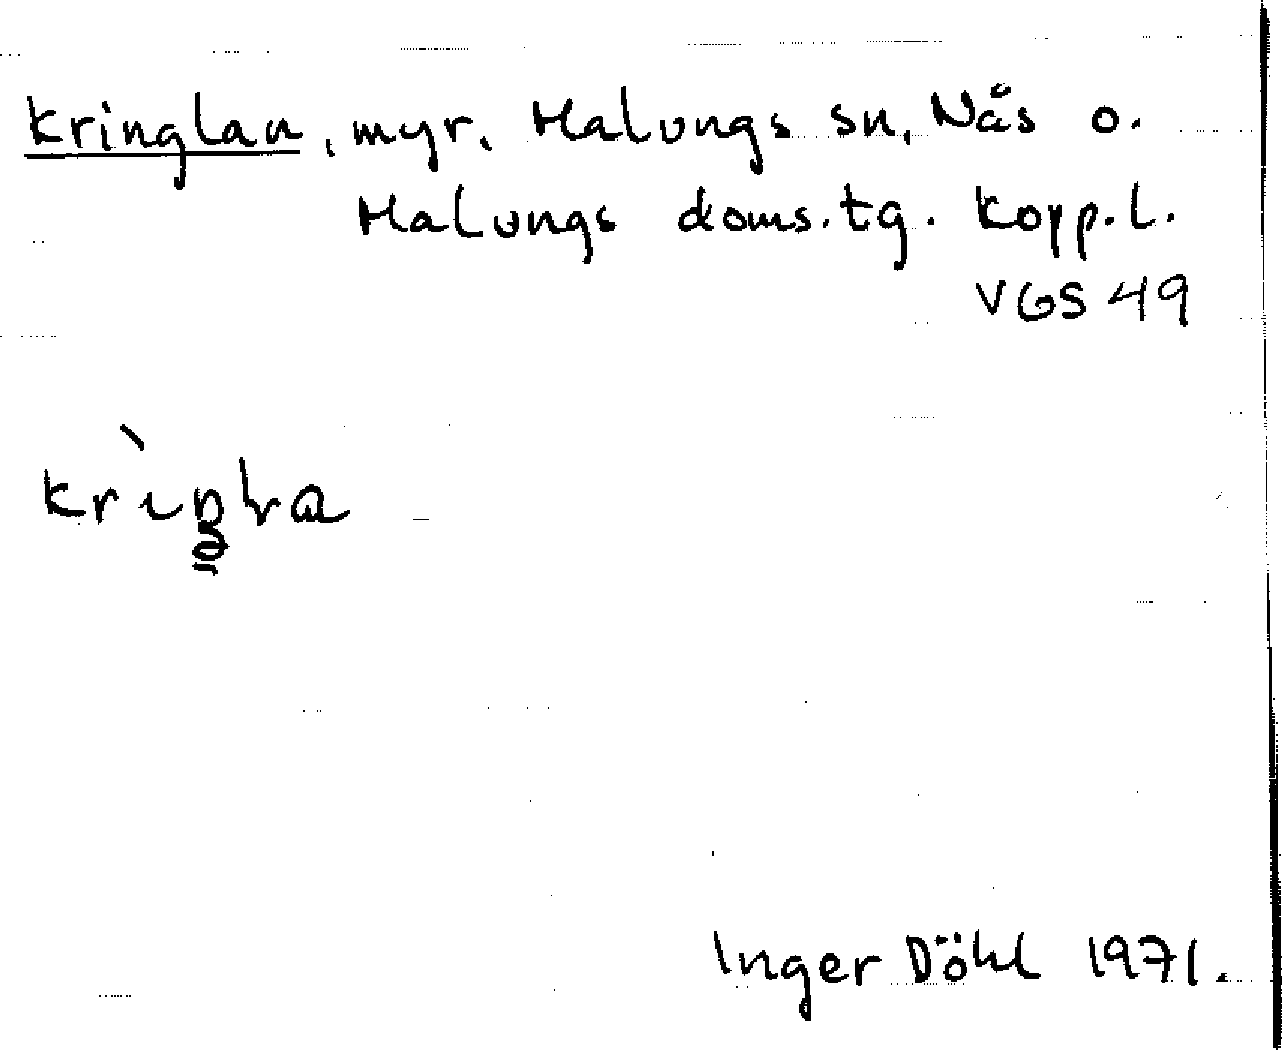 Kringlan, myr, Malungs sn, Nås o.
Malungs doms.tg. Kopp.l.
VGS 49
Inger Döhl 1971.